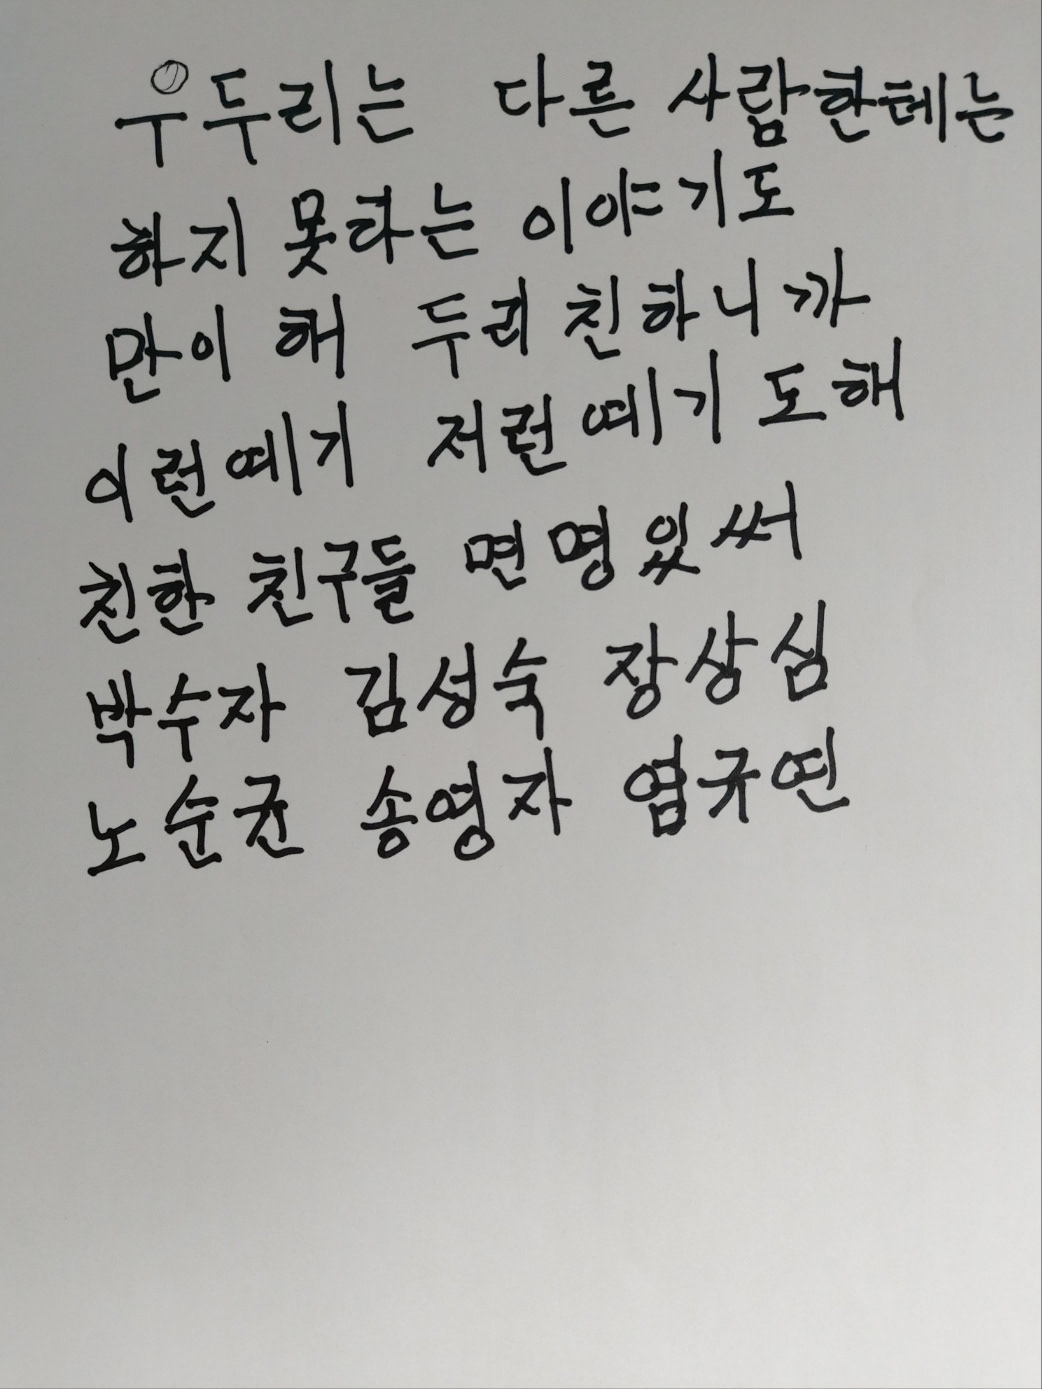 우두리는 다른 사람한테는
하지 못하는 이야기도
만이 해 두리 친하니까
이런예기 저런예기도해
친한 친구들 면명있써
박수자 김성숙 장상심
노순균 송영자 염규연